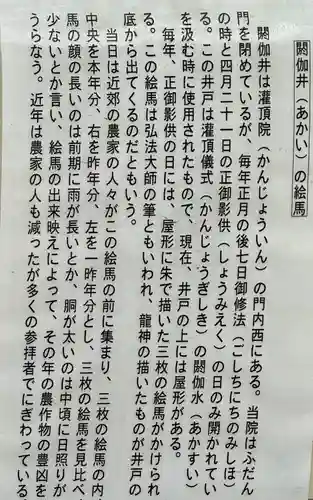 閼伽井（あかい）の絵馬
閼伽井は灌頂院（かんじょういん）の門内西にある。当院はふだん
門を閉めているが、毎年正月の後七日御修法（ごしちにちのみしほ）
の時と四月二十一日の正御影供（しょうみえく）の日のみ開かれてい
る。この井戸は灌頂儀式（かんじょうぎしき）の閼伽水（あかすい）
を汲む時に使用されたもので、現在、井戸の上には屋形がある。
毎年、正御影供の日には、屋形に朱で描いた三枚の絵馬がかけられ
る。この絵馬は弘法大師の筆ともいわれ、龍神の描いたものが井戸の
底から出てくるのだともいう。
当日は近郊の農家の人々がこの絵馬の前に集まり、三枚の絵馬の内、
中央を本年分、右を昨年分、左を一昨年分とし、三枚の絵馬を見比べ、
馬の顔の長いのは前期に雨が長いとか、胴が太いのは中頃に日照りが
少ないとか言い、絵馬の出来映えによって、その年の農作物の豊凶を
うらなう。近年は農家の人も減ったが多くの参拝者でにぎわっている